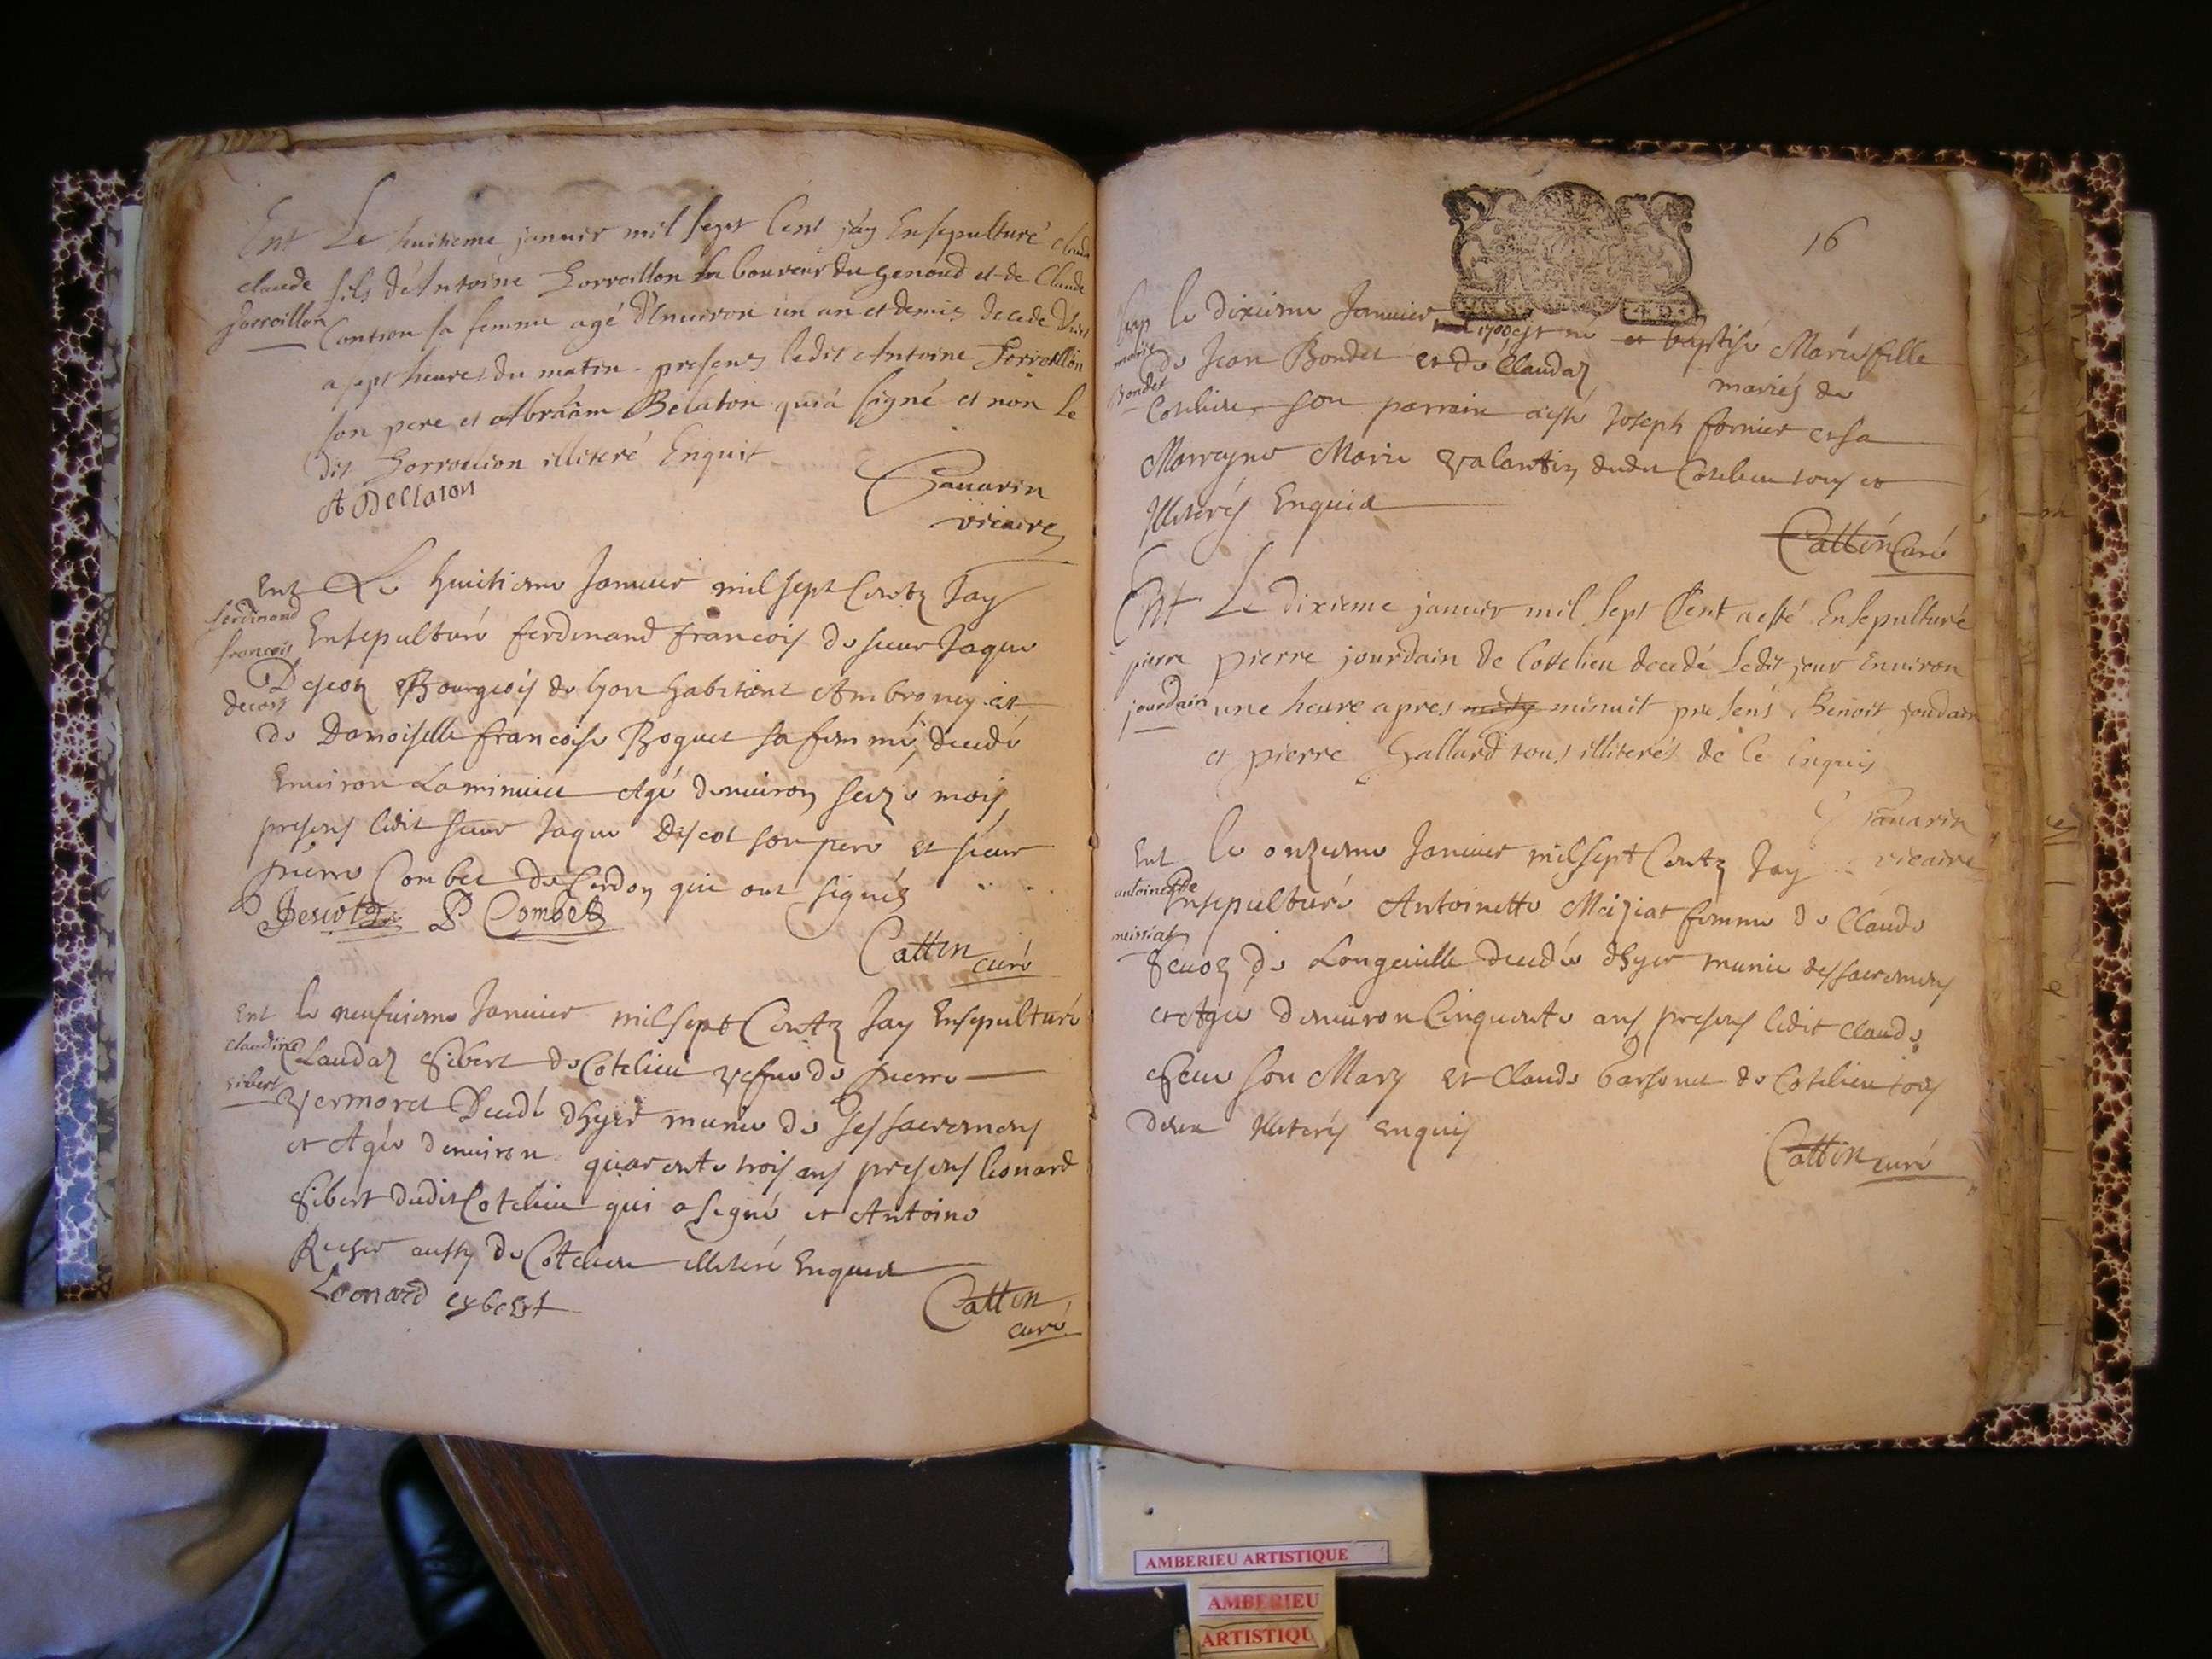 Ent Le huitieme janvir mil sept Cent j'ay Ensepulturé claude
claude fils d'Antoine Gorraillon laboureur du genoud et de Claude
gorraillon Contion sa femme agé d'Enuiron un an et demis decede
a sept heures du matin. presens ledit Antoine Gorroillon
son pere et Abraãm Belaton qui a signé et non le
dit Gorroilion illiteré Enquit
A Bellaton
Panarin
vicaire
Ent Le huitieme Januier mil sept Centz Jay
ferdinand
françois Ensepulturé ferdinand francois de sieur Jaque
descos Descot Bourgeois de lyon habitant Ambronay et
de Damoiselle francoise Boguet sa femme, decedé
Enuiron La minuict Agé denuiron seize mois
presens ledit sieur Jaque Descot son pere et sieur
pierre Combet de Cerdon qui ont signés
Descot P Combet
Cattin
curé
Ent le neufuieme Januier mil sept Centz Jay Ensepulturé
claudine Claudaz Sibert de Cotelieu vefue de pierre
sibert Vermoret Decedé dhyer munie de ses sacremens
et Agée denuiron quarente trois ans presens leonard
Sibert dudit Cotelieu qui a signé et Antoine
aussy de Cotelieu illiteré Enquis
Leonard cybert
Cattin
curé
16
Bap le dixieme Januier 1700 est né et baptisé Marie fille
marie
Bondet de Jean Bondet et de Claudaz mariés de
Cotelieu, son parrain a esté Joseph fornier et sa
Marrayne Marie Valantin dudit Cotelieu tous
Illiterés Enquis
Cattin Curé
Ent Le dixieme janvir mil sept Cent a esté Ensepulturé
pierre pierre jourdain de Cotelieu decedé Ledit jour Enuiron
jourdain une heure apres midy minuit presens Benoit jourdain
et pierre Gallard tous illiterés de ce enquis
Panarin
vicaire
Ent le onzieme Januier mil sept Centz Jay
antoinette Ensepulturé Antoinette Meiziat femme de Claude
meissiat
de Longeuille decedée dhyer munie des sacremens
et Agée denuiron Cinquente ans presens ledit Claude
son Mary et Claude barsonet de Cotelieu tous
deux Illiterés enquis
Cattin curé
AMBERIEU ARTISTIQUE
AMBERIEU
ARTISTIQU